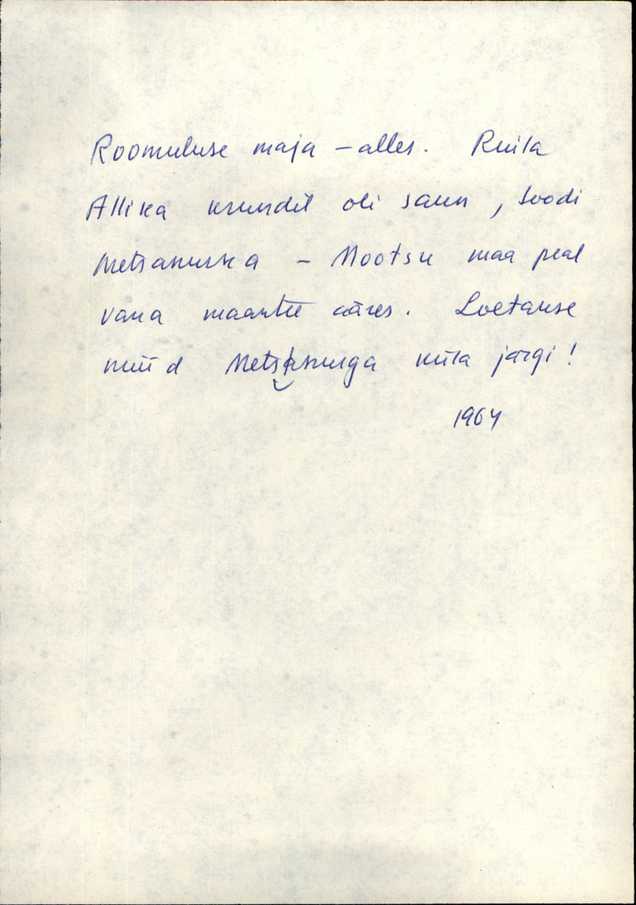 Roomuluse maja – alles. Ruila
Allika krundil oli saun, toodi
Metsanurka – Mootsu maa peal
vana maantee ääres. Loetakse
nüüd Metsanurga küla järgi!
1964